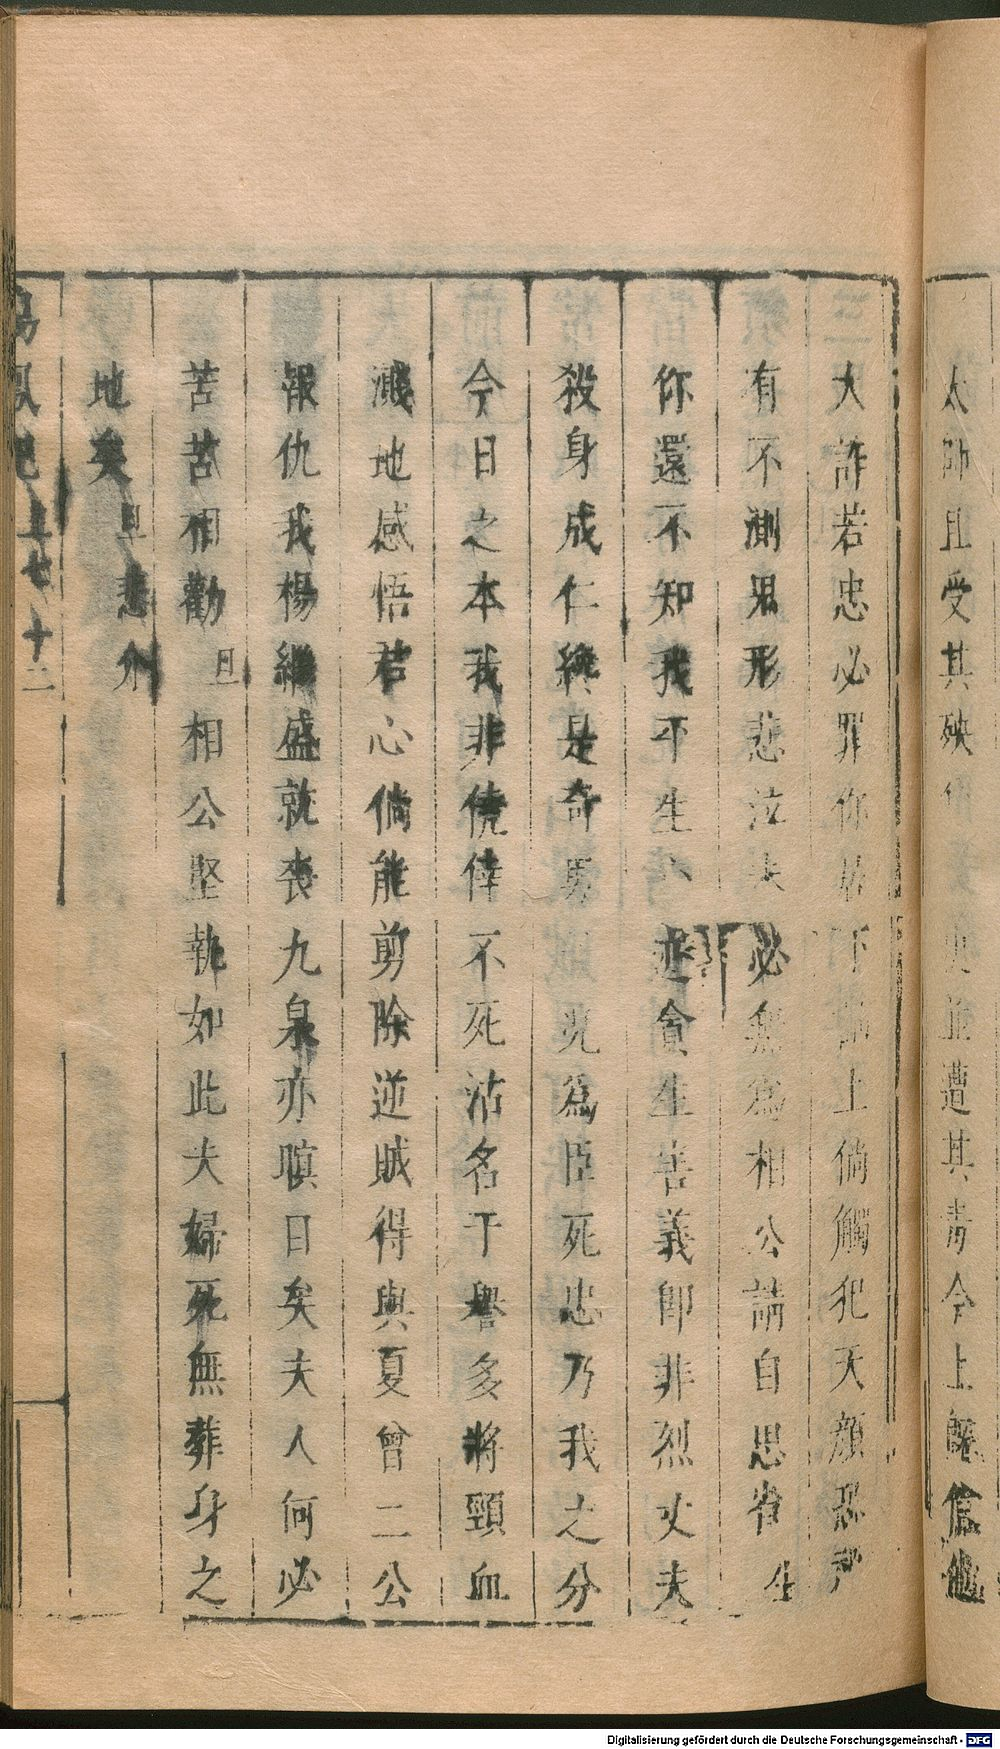 太師且受其殃 並遭其害今上旣信他
大詐若忠必罪你 上倘觸犯天顏恐
有不測果形悲泣 必無 相公請自思省 生
你還不知我平生 貪生害義卽非烈丈夫
殺身成仁終是奇男 爲臣死忠乃我之分
今日之本我非僥倖不死沽名干譽多將頸血
濺地感悟君心倘能剪除逆賊得與夏曾二公
報仇我楊繼盛就喪九泉亦瞑目矣夫人何必
苦苦相勸 旦 相公堅執如此夫婦死無葬身之
地矣 旦悲介
鳴鳳記 上 七十二
Digitalisierung gefördert durch die Deutsche Forschungsgemeinschaft - DFG